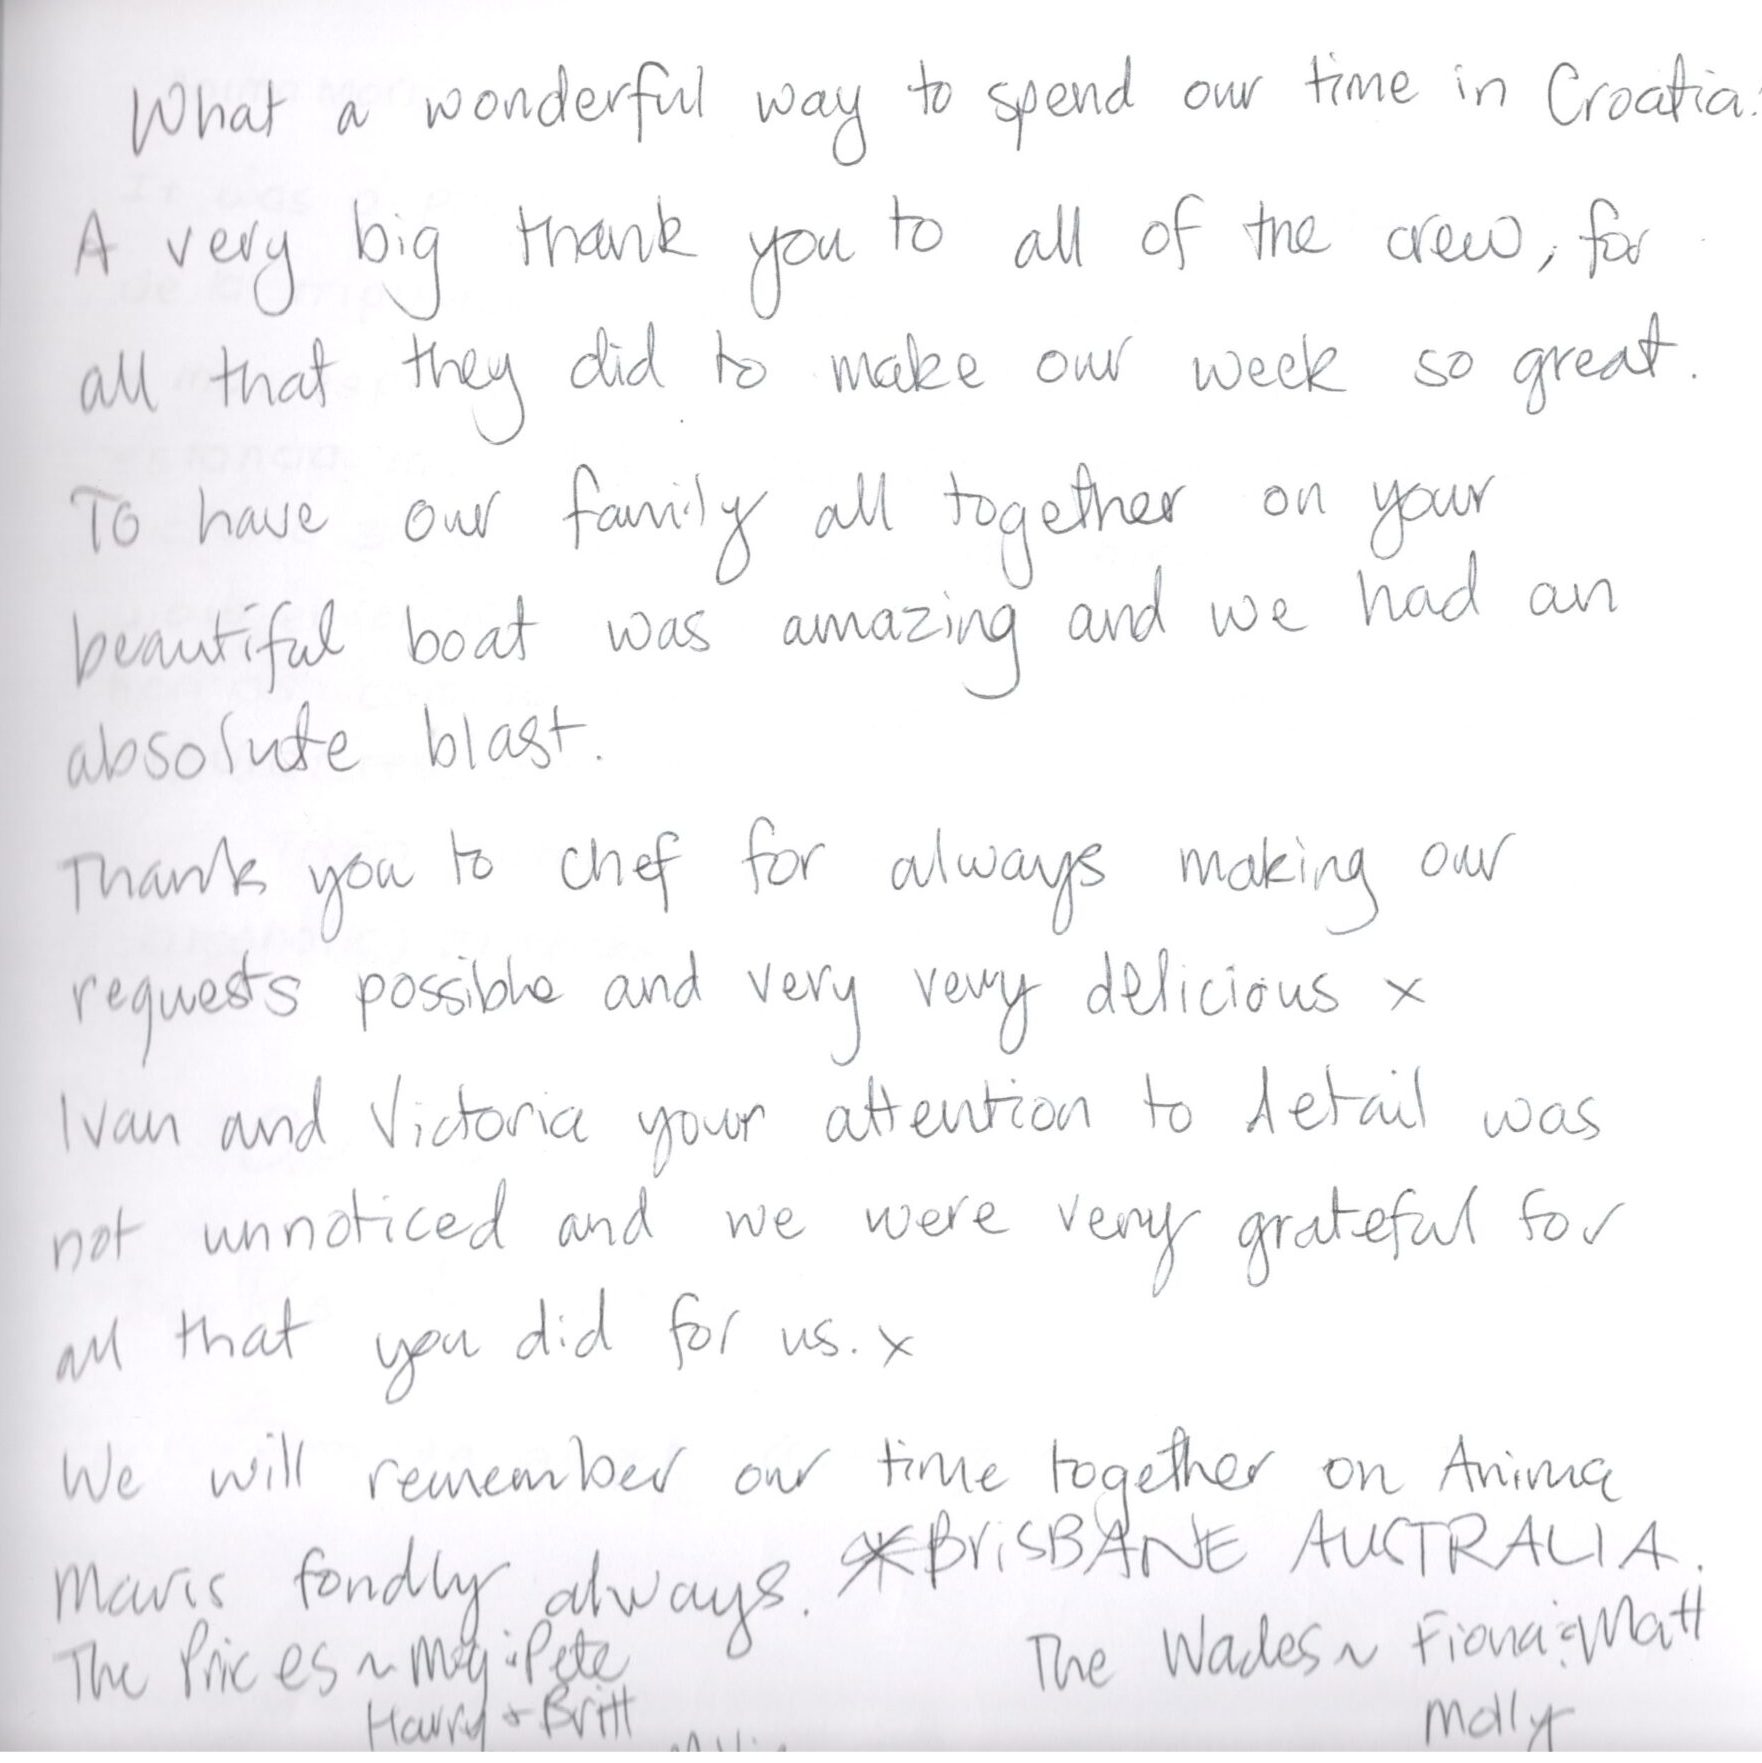 What a wonderful way to spend our time in Croatia.
A very big thank you to all of the crew, for
all that they did to make our week so great.
To have our family all together on your
beautiful boat was amazing and we had an
absolute blast.
Thank you to chef for always making our
requests possible and very very delicious x
Ivan and Victoria your attention to detail was
not unnoticed and we were very grateful for
all that you did for us. x
We will remember our time together on Anima
Maris fondly always. *BRISBANE AUSTRALIA.
The Prices ~ Meg & Pete
Harry + Britt
The Wades ~ Fiona & Matt
Molly